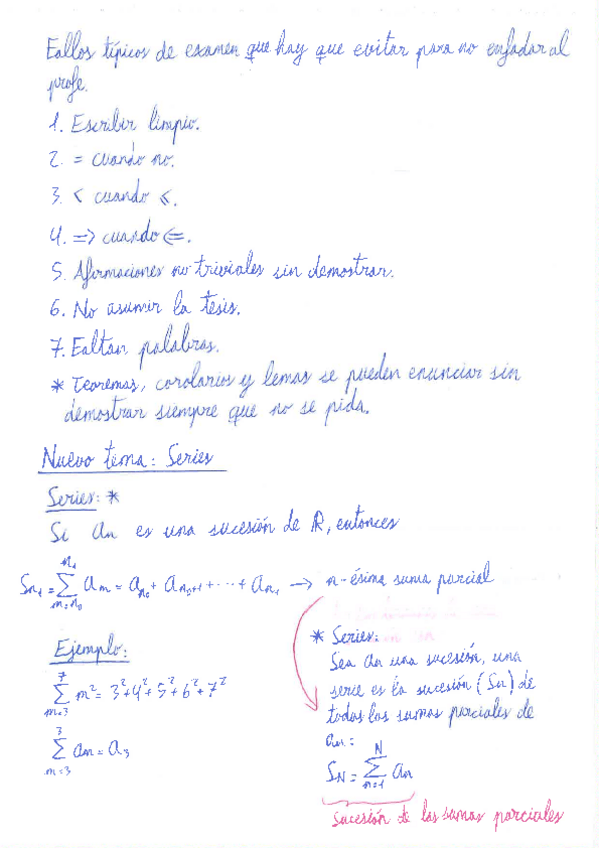 Fallos típicos de examen que hay que evitar para no enfadar al
profe.
1. Escribir limpio.
2. = cuando no.
3. < cuando ≤.
4. => cuando <=.
5. Afirmaciones no triviales sin demostrar.
6. No asumir la tesis.
7. Faltan palabras.
* Teoremas, corolarios y lemas se pueden enunciar sin
demostrar siempre que no se pida.
Nuevo tema: Series
Series: *
Si an es una sucesión de ℝ, entonces
Sn₁ = ∑_{m=n₀}^{n₁} am = a_{n₀} + a_{n₀+1} + ··· + a_{n₁} → n-ésima suma parcial
Ejemplo:
∑_{m=3}^{7} m² = 3²+4²+5²+6²+7²
∑_{m=3}^{3} am = a₃
* Series:
Sea an una sucesión, una
serie es la sucesión (Sn) de
todas las sumas parciales de
an:
S_N = ∑_{n=1}^{N} an
sucesión de las sumas parciales